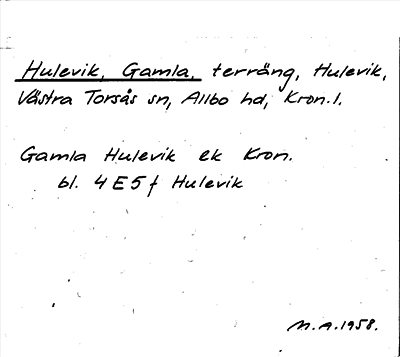 Hulevik, Gamla, terräng, Hulevik,
Västra Torsås sn, Allbo hd, Kron. l.
Gamla Hulevik ek Kron.
bl. 4E5f Hulevik
M.A. 1958.